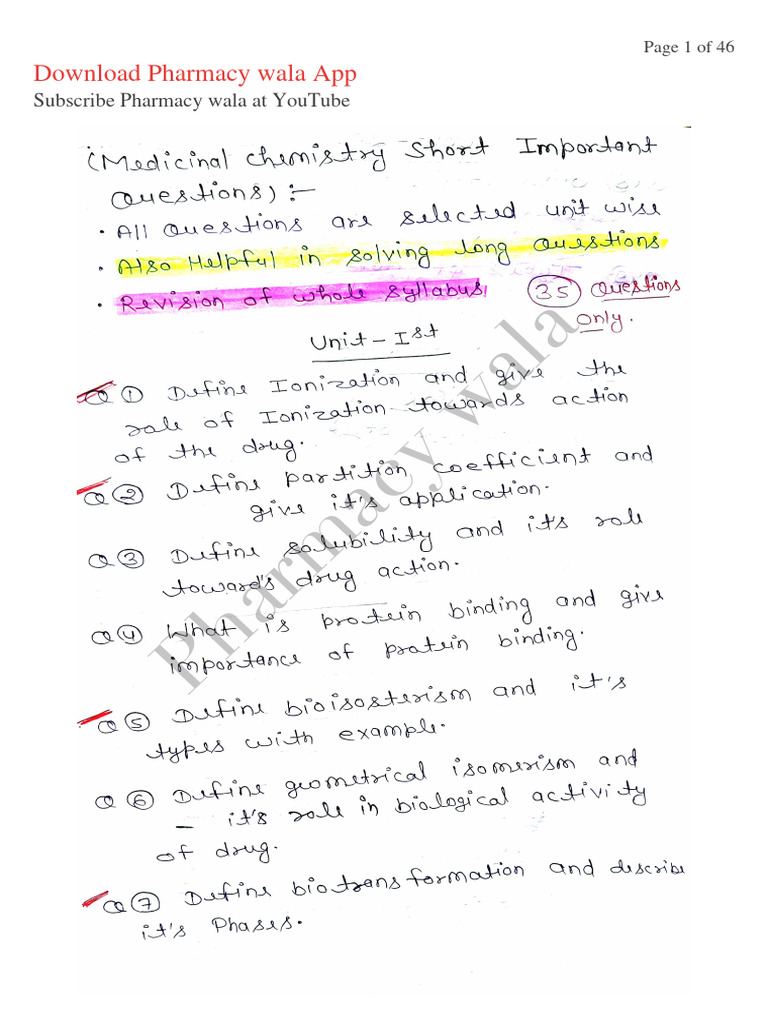 Page 1 of 46
Download Pharmacy wala App
Subscribe Pharmacy wala at YouTube
(Medicinal chemistry Short Important
Questions):-
• All Questions are selected unit wise
• Also Helpful in solving long Questions
• Revision of whole syllabus, 35 Questions
Only.
Unit - Ist
Q 1 Define Ionization and give the
role of Ionization towards action
of the drug.
Q 2 Define partition coefficient and
give it's application.
Q 3 Define solubility and it's role
toward's drug action.
Q 4 What is protein binding and give
importance of protein binding.
Q 5 Define bioisosterism and it's
types with example.
Q 6 Define geometrical isomerism and
– it's role in biological activity
of drug.
Q 7 Define biotransformation and describe
it's Phases.
Pharmacy wala